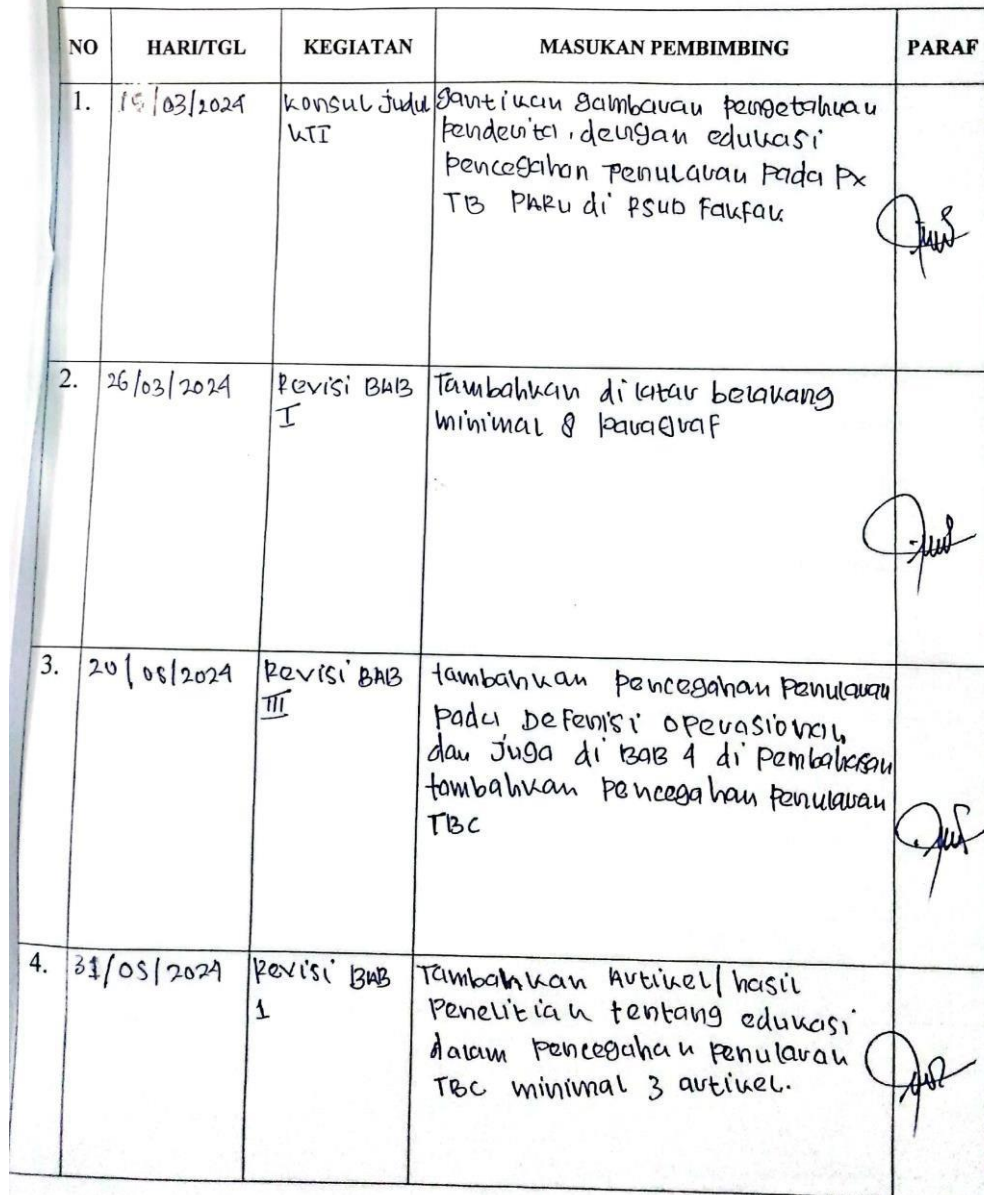 NO HARI/TGL KEGIATAN MASUKAN PEMBIMBING PARAF
1. 15/03/2024 Konsul Judul KTI
gantikan gambaran pengetahuan
penderita, dengan edukasi
pencegahan penularan pada Px
TB PARU di RSUD Fakfak
2. 26/03/2024 Revisi BAB I
Tambahkan di latar belakang
minimal 8 paragraf
3. 20/05/2024 Revisi BAB III
tambahkan pencegahan penularan
pada Defenisi operasional
dan juga di BAB 4 di pembahasan
tambahkan pencegahan penularan
TBC
4. 31/05/2024 Revisi BAB 1
Tambahkan Artikel/hasil
penelitian tentang edukasi
dalam pencegahan penularan
TBC minimal 3 artikel.